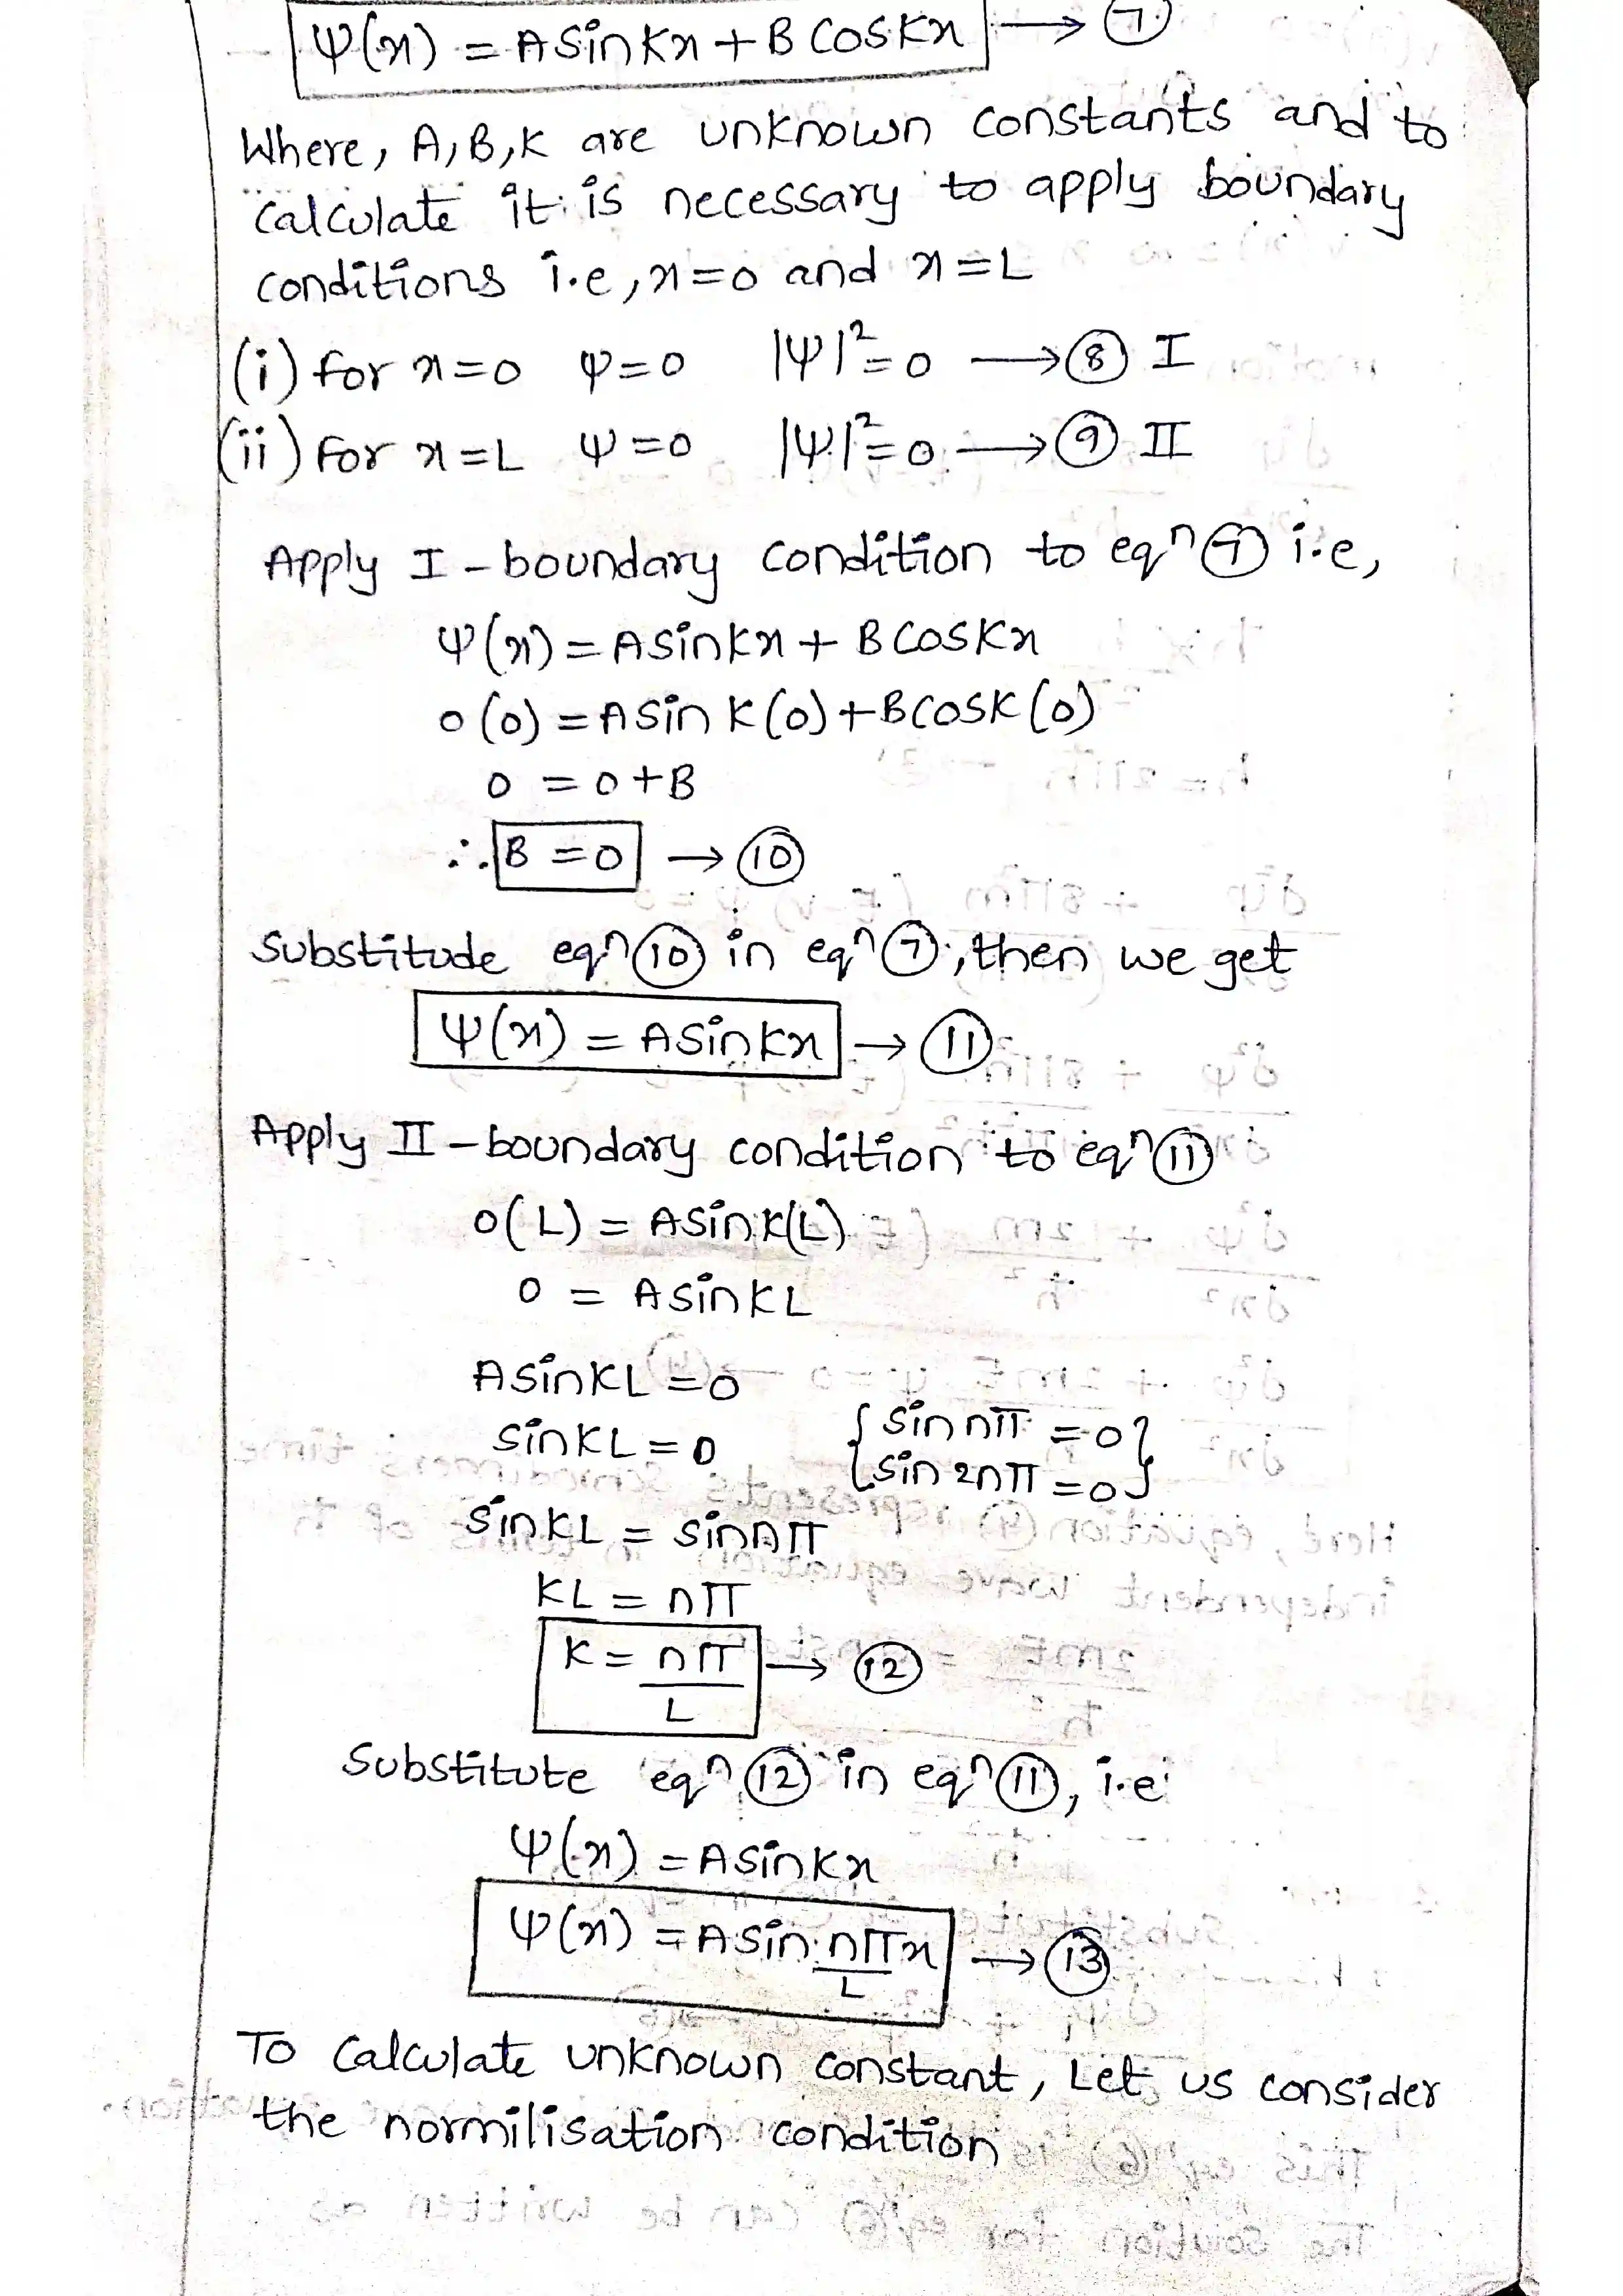 Ψ(x) = A sin Kx + B cos Kx → ⑦
Where, A, B, K are unknown constants and to
calculate it is necessary to apply boundary
conditions i.e, x=0 and x=L
(i) for x=0 Ψ=0 |Ψ|²=0 → ⑧ I
(ii) for x=L Ψ=0 |Ψ|²=0 → ⑨ II
Apply I - boundary condition to eqⁿ ⑦ i.e,
Ψ(x) = A sin Kx + B cos Kx
0(0) = A sin K(0) + B cos K(0)
0 = 0+B
∴ B = 0 → ⑩
Substitude eqⁿ ⑩ in eqⁿ ⑦, then we get
Ψ(x) = A sin Kx → ⑪
Apply II - boundary condition to eqⁿ ⑪
0(L) = A sin K(L)
0 = A sin KL
A sin KL = 0
sin KL = 0 {sin nπ = 0
sin 2nπ = 0}
sin KL = sin nπ
KL = nπ
K = nπ/L → ⑫
Substitute eqⁿ ⑫ in eqⁿ ⑪, i.e
Ψ(x) = A sin Kx
Ψ(x) = A sin nπ/L x → ⑬
To Calculate unknown constant, Let us consider
the normilisation condition